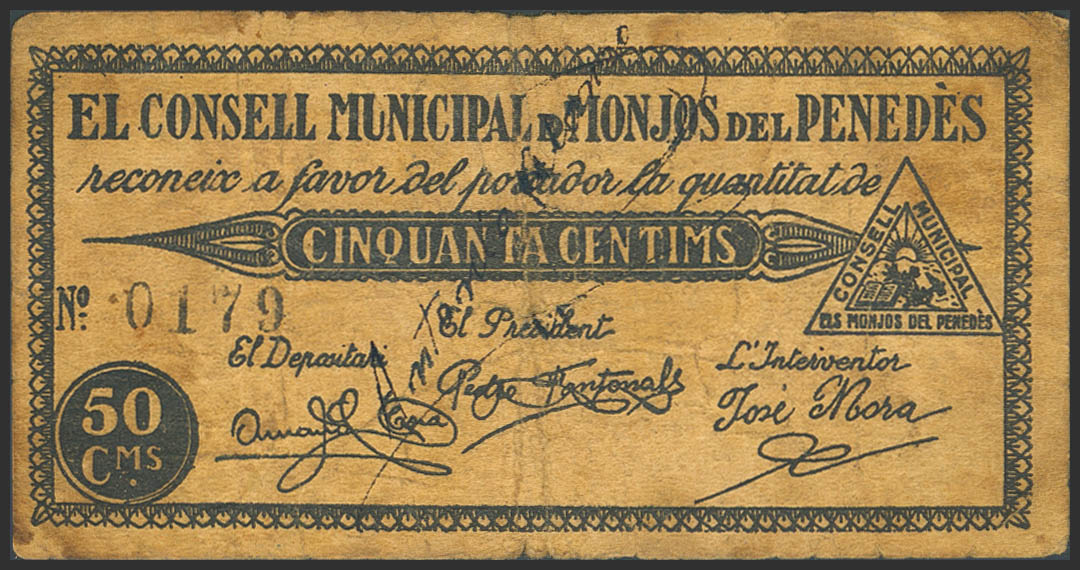 EL CONSELL MUNICIPAL DE MONJOS DEL PENEDÈS
reconeix a favor del portador la quantitat de
CINQUANTA CENTIMS
CONSELL MUNICIPAL
ELS MONJOS DEL PENEDÈS
Nº 0179
El President
El Depositari
L'Interventor
Pedro
José Mora
50
CMS.